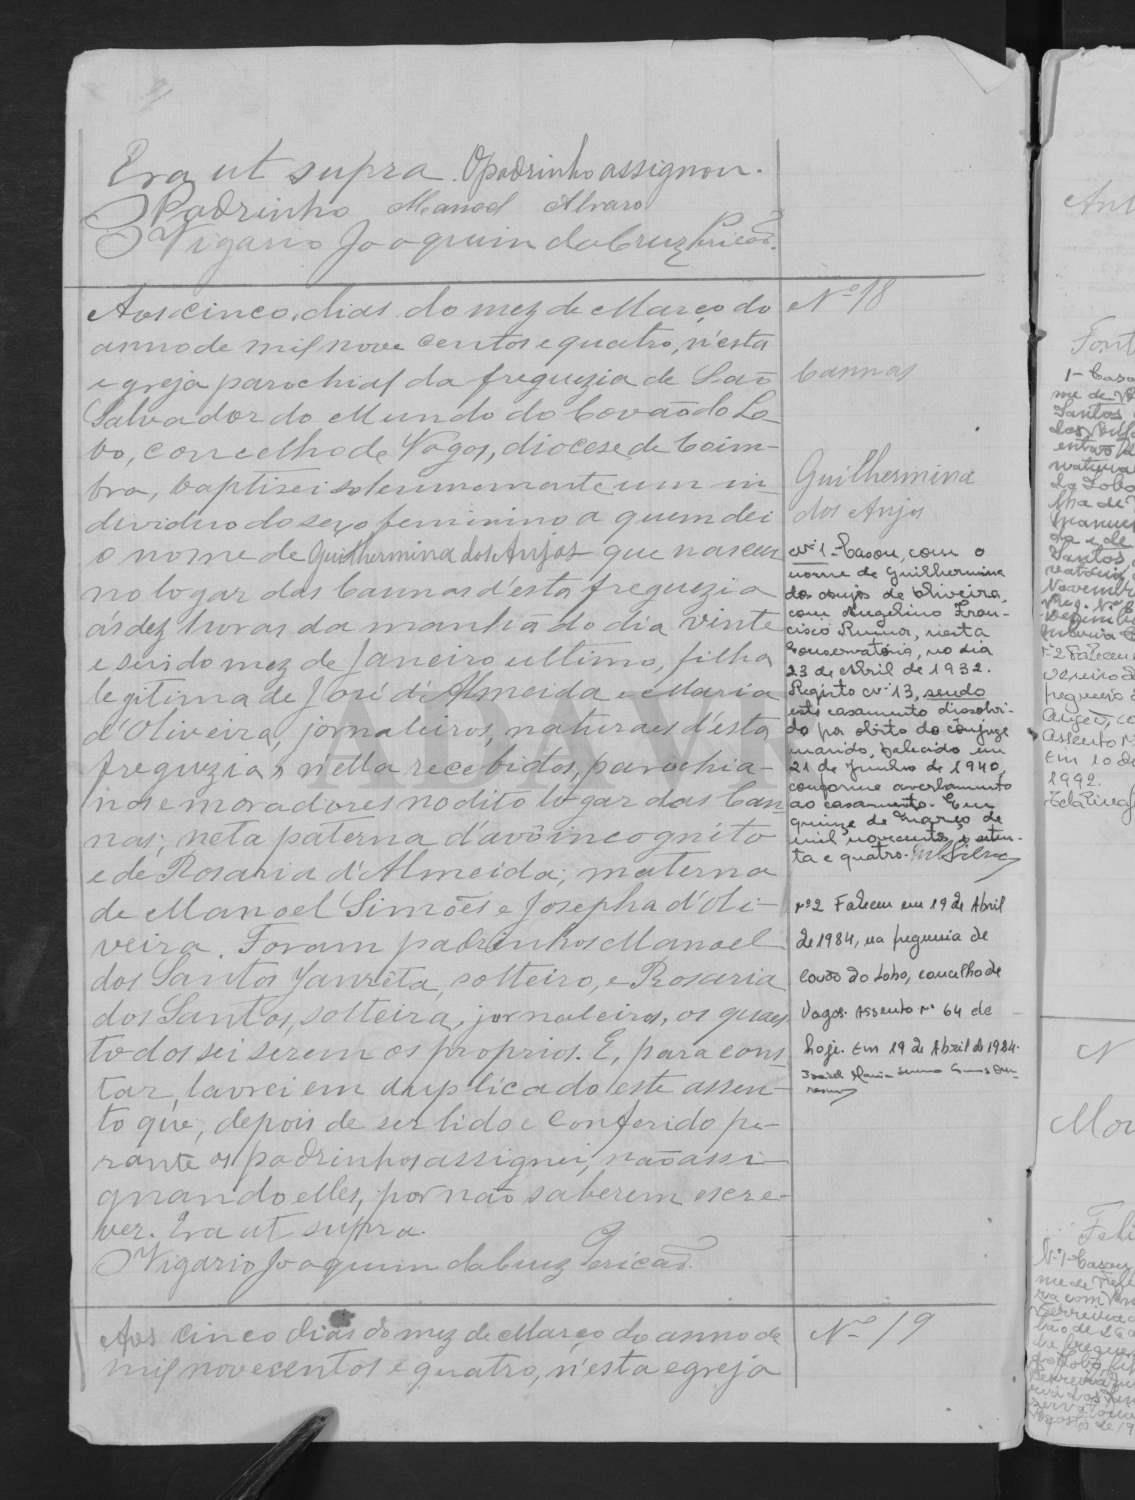 Era ut supra. O padrinho assignou.
Padrinho Manoel Alvaro
O Vigario Joaquim da Cruz Pericão.
Aos cinco dias do mez de Março do
anno de mil nove centos e quatro, n'esta
egreja parochial da freguezia de São
Salvador do Mundo do Covão do Lo-
bo, concelho de Vagos, diocese de Coim-
bra, baptisei solemnemente um in-
dividuo do sexo feminino a quem dei
o nome de Guilhermina dos Anjos que nasceu
no logar das Cannas d'esta freguezia
ás dez horas da manhã do dia vinte
e seis do mez de Janeiro ultimo, filha
legitima de José d'Almeida e Maria
d'Oliveira, jornaleiros, naturaes d'esta
freguezia, n'ella recebidos, parochia-
nos e moradores no dito logar das Can-
nas; neta paterna d'avô incognito
e de Rosaria d'Almeida; materna
de Manoel Simões e Josepha d'Oli-
veira. Foram padrinhos Manoel
dos Santos, solteiro, e Rosaria
dos Santos, solteira, jornaleiros, os quaes
todos sei serem os proprios. E, para cons-
tar, lavrei em duplicado este assen-
to que, depois de ser lido e conferido pe-
rante os padrinhos assignei, não assi-
gnando elles, por não saberem escre-
ver. Era ut supra.
O Vigario Joaquim da Cruz Pericão.
Aos cinco dias do mez de Março do anno de
mil novecentos e quatro, n'esta egreja
Nº 18
Cannas
Guilhermina
dos Anjos
Nº 1 - Casou, com o
nome de Guilhermina
dos Anjos de Oliveira,
com Angelino Fran-
cisco, nesta
Conservatória, no dia
23 de Abril de 1932.
Registo nº 13, sendo
este casamento dissolvi-
do por óbito do cônjuge
marido, falecido em
21 de Junho de 1940,
conforme averbamento
ao casamento. Em
quinze de Março de
mil novecentos e seten-
ta e quatro.
nº 2 Faleceu em 19 de Abril
de 1984, na freguesia de
Covão do Lobo, concelho de
Vagos. Assento nº 64 de
hoje. Em 19 de Abril de 1984.
Nº 19
ADAVR